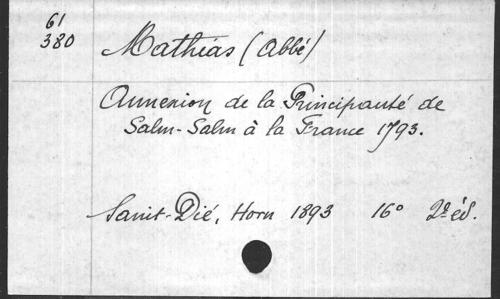 61
380
Mathias (Abbé)
Annexion de la Principauté de
Salm-Salm à la France 1793.
Saint-Dié, Horn 1893 16° 2e éd.